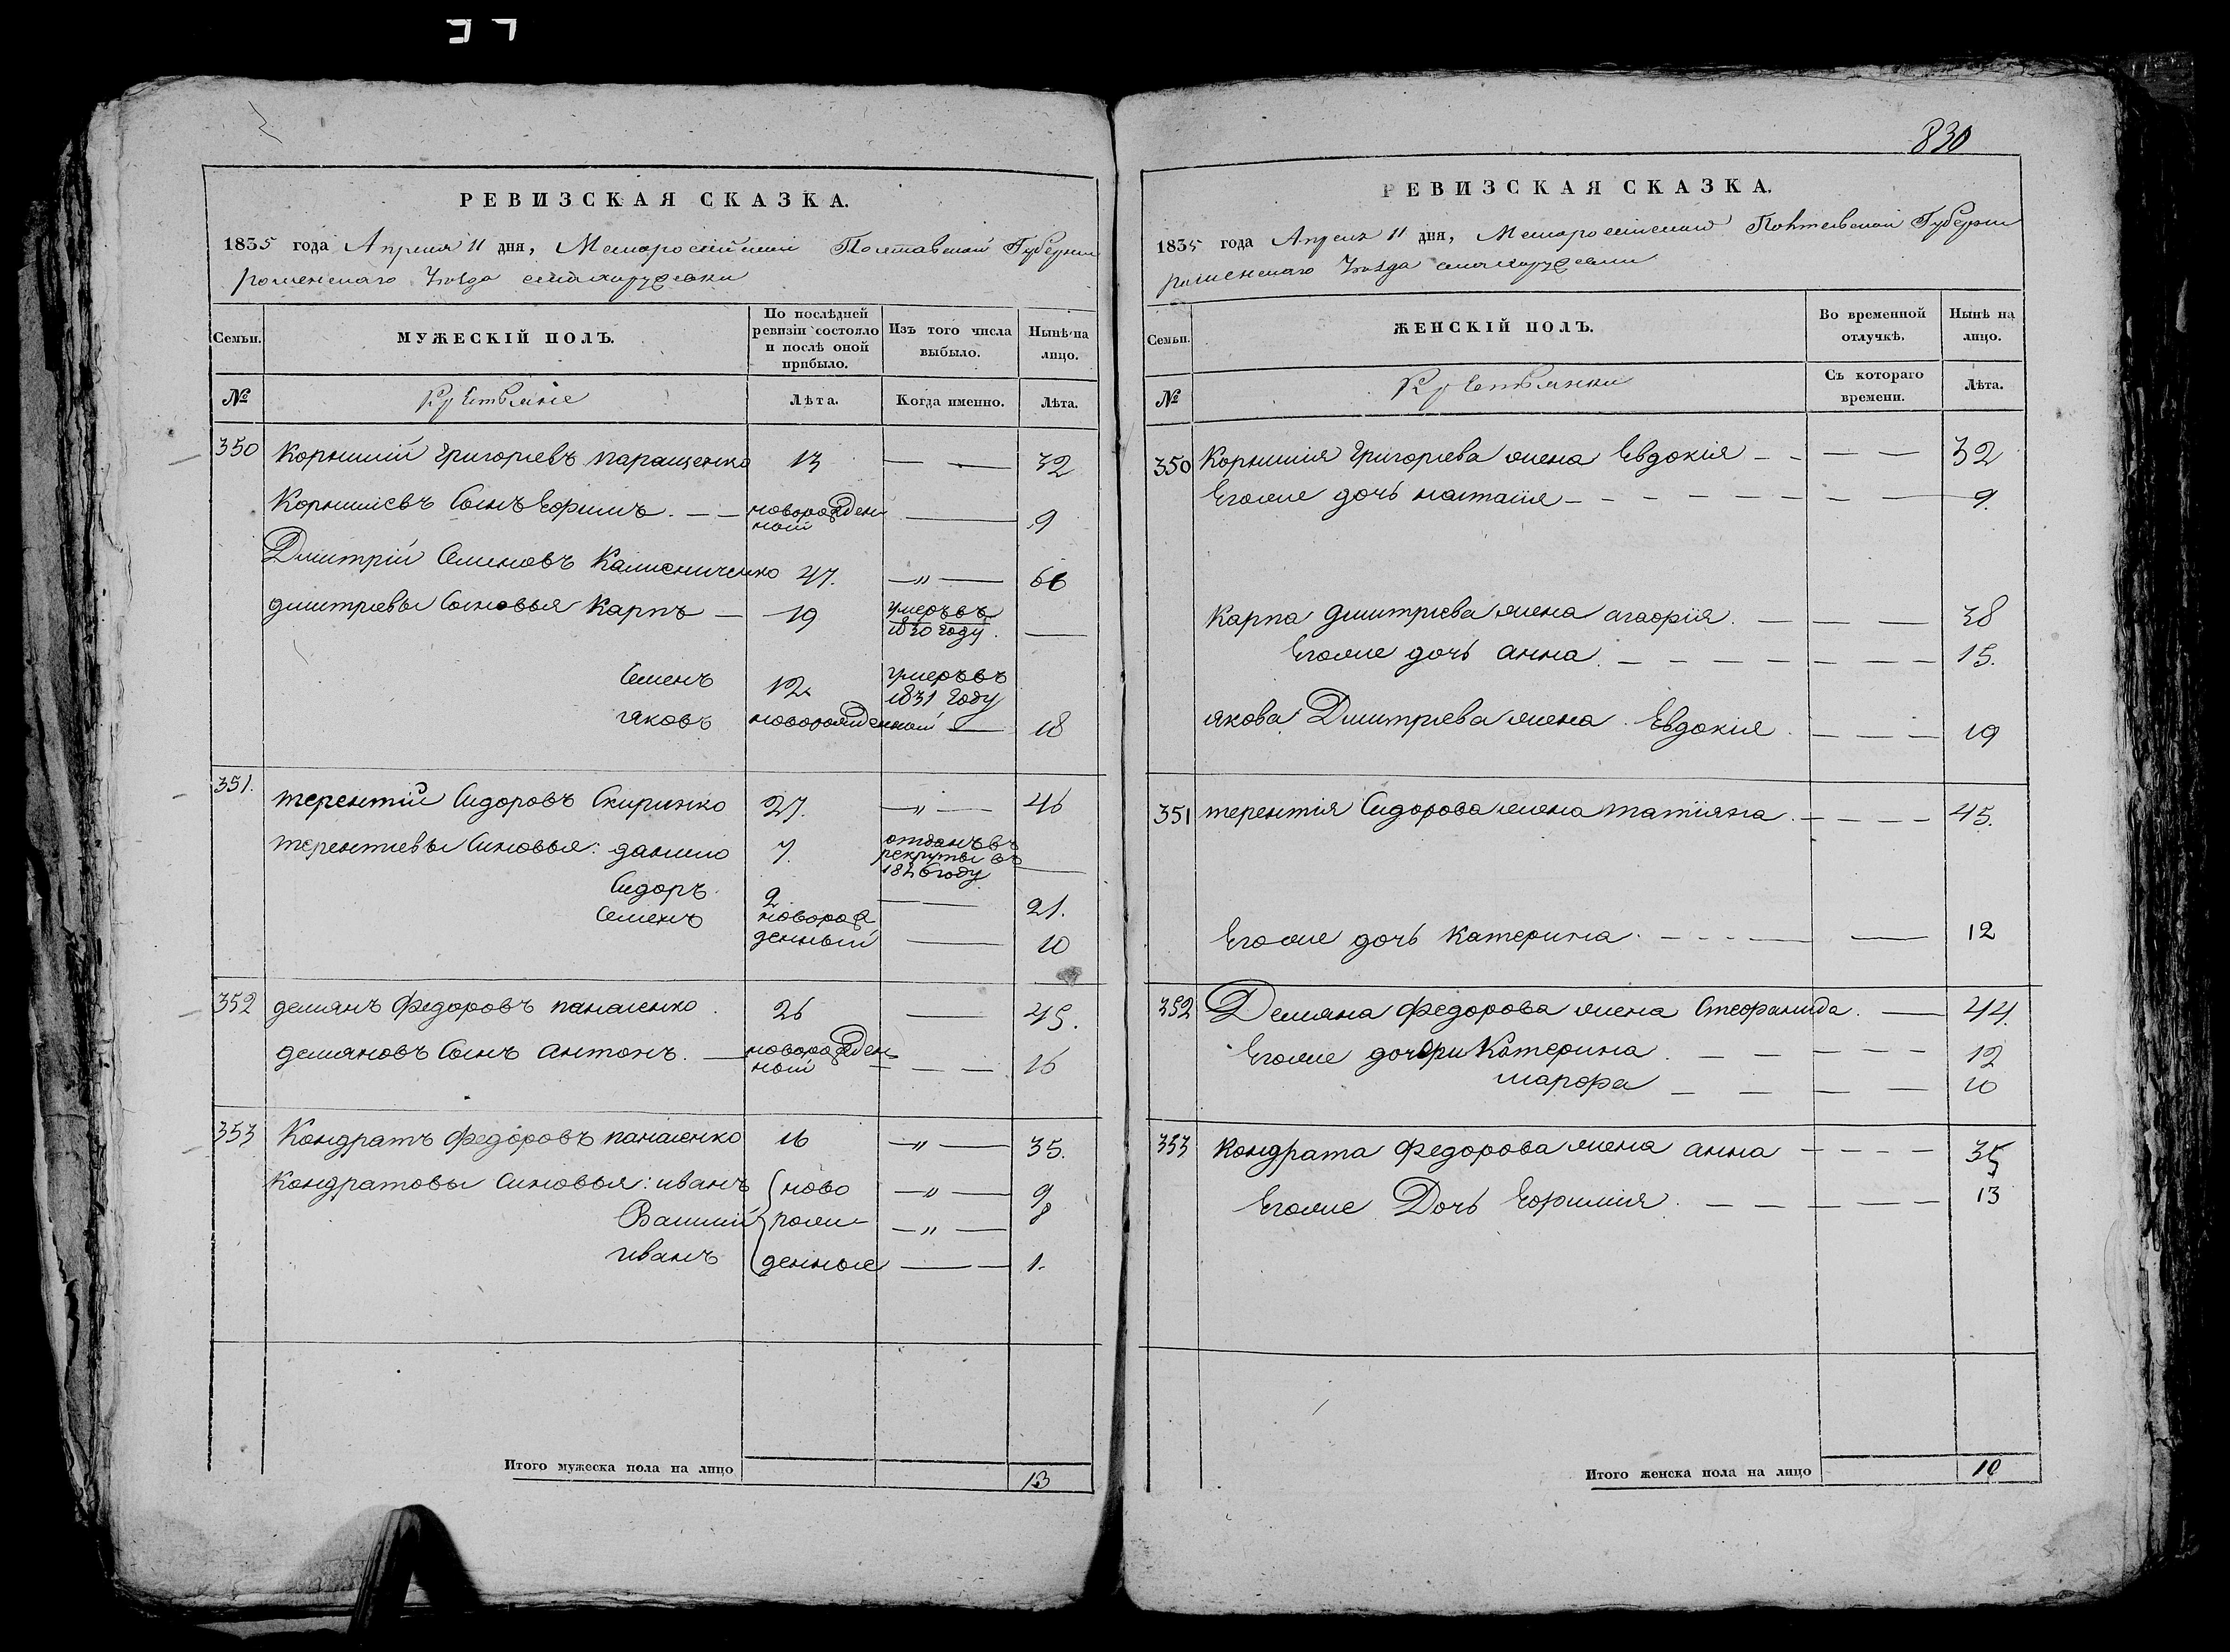 830
РЕВИЗСКАЯ СКАЗКА.
1835 года Апреля 11 дня, Малоросийской Полтавской Губернии
роменскаго уѣзда села харуд
Семьи.
МУЖЕСКІЙ ПОЛЪ.
По послѣдней ревизіи состояло и послѣ оной прибыло.
Изъ того числа выбыло.
Нынѣ на лицо.
№
Крестьяніе
Лѣта.
Когда именно.
Лѣта.
350 Корнилий Григориевъ паращенко 13 — — 32
Корнилиевъ Сынъ Ефимъ. — — новорожден ной — 9
Дмитрій Семеновъ 47. —„— 66
дмитриевы Сыновья Карпъ — 19 умеръ въ 1830 году. —
Семенъ 12. умеръ въ 1831 году
яковъ новорожденной — 18
351. терентій Сидоровъ Скиринко 27. —„— 46
терентиевы Синовья: данило 7. отданъ въ рекруты въ 1826 году —
Сидоръ 2 — — 21.
Семенъ новорож денный — 10
352 демянъ Федоровъ панасенко. 26 — 45.
демяновъ Сынъ антонъ. — новорожден ной — — — 16
353 Кондратъ Федоровъ панасенко 16 —„— 35.
Кондратовы Синовья: иванъ ново —„— 9
Василий рож —„— 8
иванъ денные — — 1.
Итого мужеска пола на лицо 13
РЕВИЗСКАЯ СКАЗКА.
1835 года Апреля 11 дня, Малоросийской Полтавской Губернии
роменскаго уѣзда села харуд
Семьи.
ЖЕНСКІЙ ПОЛЪ.
Во временной отлучкѣ.
Нынѣ на лицо.
№
Крестьянки
Съ котораго времени.
Лѣта.
350 Корнилия Григориева жена Евдокія — — — — 32
Егоже дочь настасія — — — — — — — — 9.
Карпа дмитриева жена агафрія. — — — 38
Егоже дочь анна. — — — — — — — 15.
якова Дмитриева жена Евдокія. — — — 19
351 терентія Сидорова жена татіяна. — — — — 45.
Егоже дочь катерина. — — — — — 12
352 Демяна Федорова жена Стефанида. — 44.
Егоже дочери Катерина. — — — — — 12
марфа — — — — 10
353 кондрата Федорова жена анна — — — — 35
Егоже Дочь Ефимия. — — — — — — 13
Итого женска пола на лицо 10